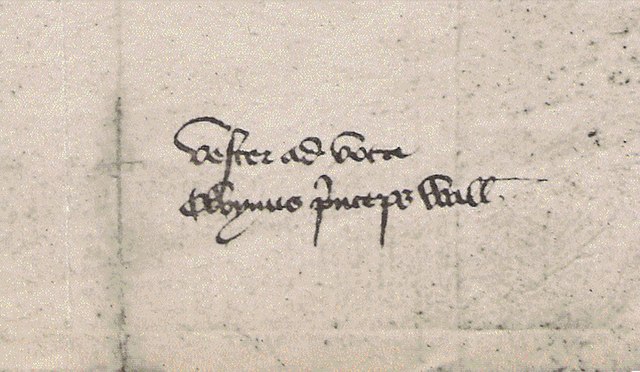 Vester ad vota
Owynus princeps Wall